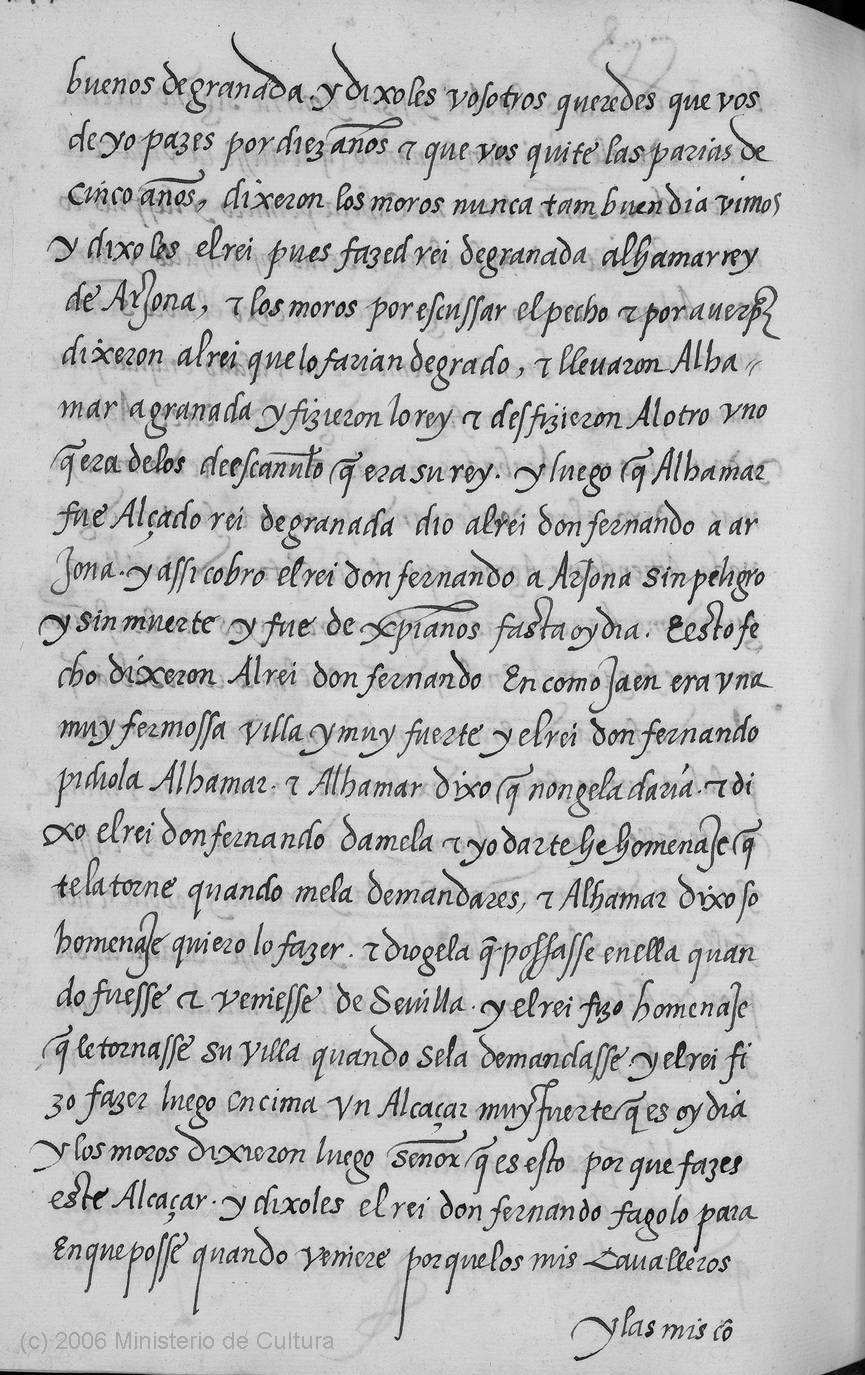 buenos de granada. y dixoles vosotros queredes que vos
de yo pazes por diez años τ que vos quite las parias de
cinco años, dixeron los moros nunca tam buen dia vimos
y dixoles el rei pues fazed rei de granada alhamar rey
de Arjona, τ los moros por escussar el pecho τ por aver pz̄
dixeron al rei que lo farian de grado, τ llevaron Alha=
mar a granada y fizieron lo rey τ desfizieron Al otro uno
q̄ era de los de escanuło q̄ era su rey. y luego q̄ Alhamar
fue Alçado rei de granada dio al rei don fernando a ar
jona. y assi cobro el rei don fernando a Arjona sin peligro
y sin muerte y fue de xp̄ianos fasta oy dia. E esto fe
cho dixeron Al rei don fernando En como Jaen era una
muy fermossa villa y muy fuerte y el rei don fernando
pidiola Alhamar. τ Alhamar dixo q̄ non gela daria. τ di
xo el rei don fernando damela τ yo darte he homenaje q̄
te la torne quando me la demandares, τ Alhamar dixo so
homenaje quiero lo fazer. τ diogela q̄ possasse en ella quan
do fuesse τ veniesse de Sevilla. y el rei fizo homenaje
q̄ le tornasse su villa quando se la demandasse y el rei fi
zo fazer luego encima Un Alcaçar muy fuerte q̄ es oy dia
y los moros dixieron luego señor q̄ es esto por que fazes
este Alcaçar. y dixoles el rei don fernando fagolo para
En que posse quando veniere porque los mis Cavalleros
y las mis cō
(c) 2006 Ministerio de Cultura